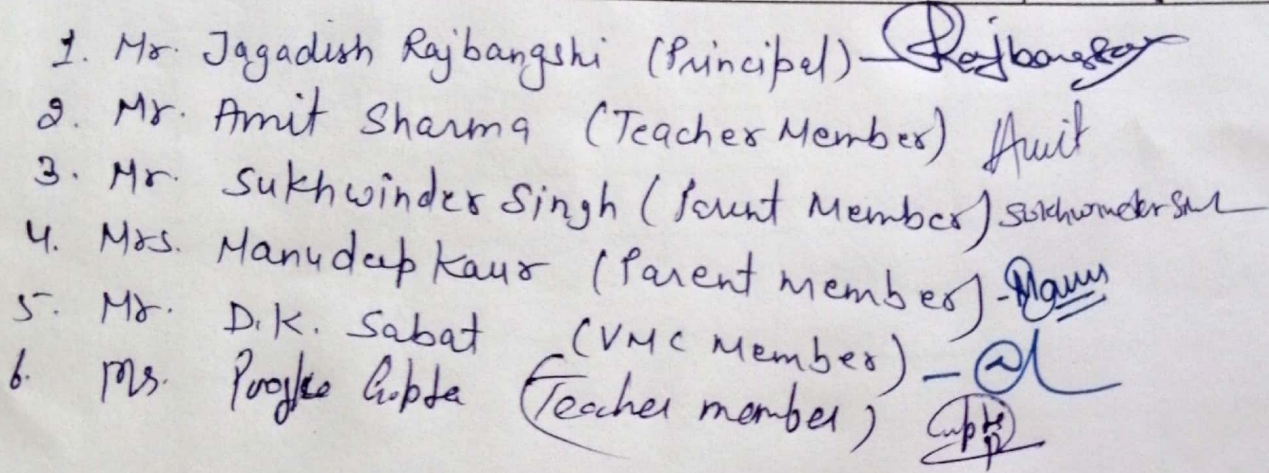 1. Mr. Jagadish Rajbangshi (Principal) - Rajbangshi
2. Mr. Amit Sharma (Teacher Member) Amit
3. Mr. Sukhwinder Singh (Parent Member) Sukhwinder
4. Mrs. Manudeep Kaur (Parent member) -
5. Mr. D.K. Sabat (VMC Member) -
6. Ms. Gupta (Teacher member) Gupta